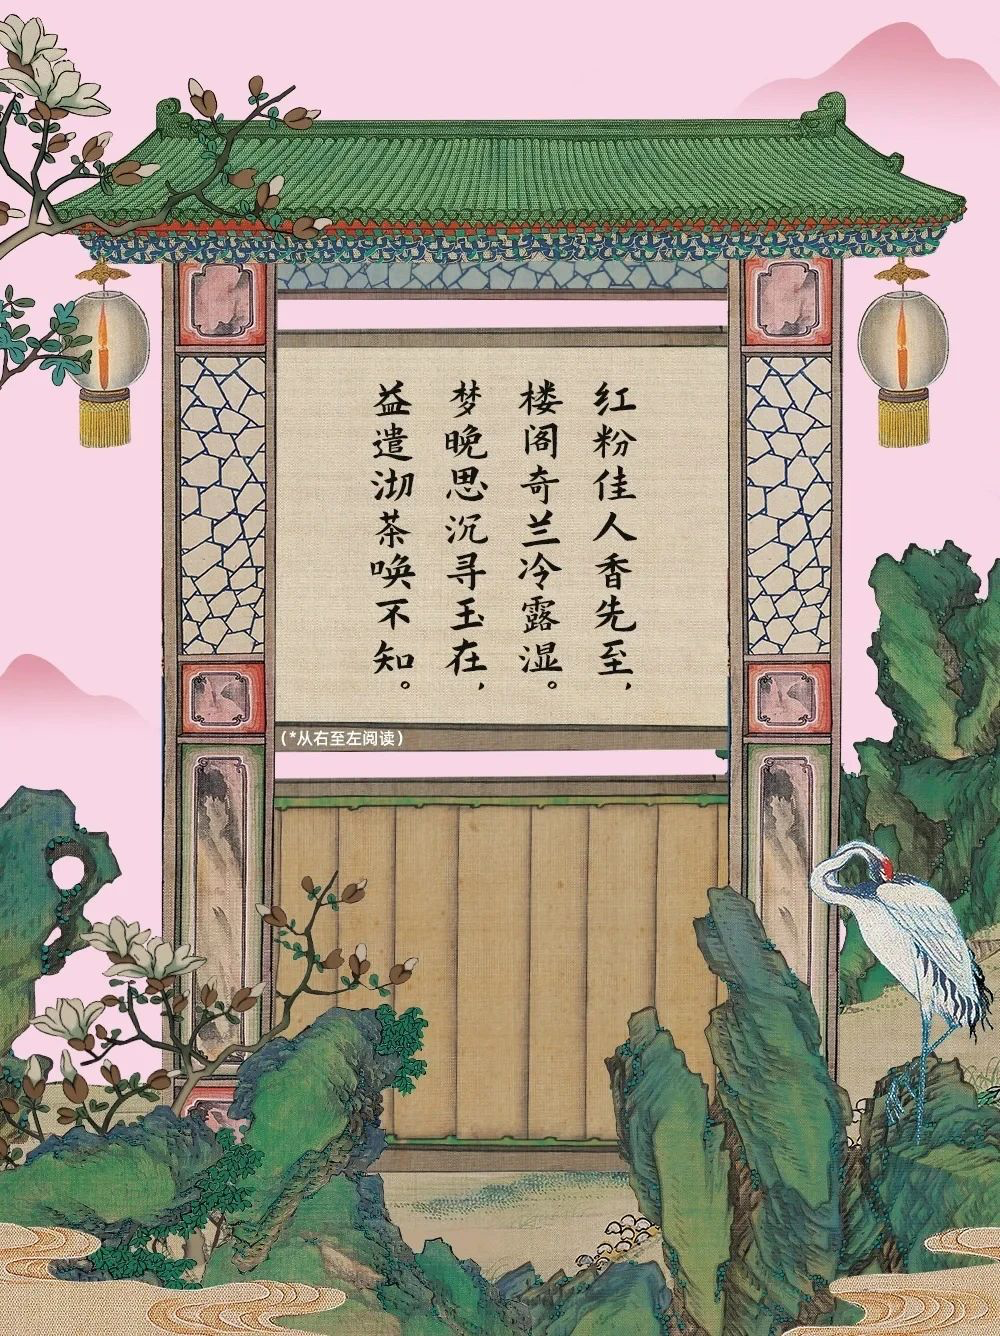 红粉佳人香先至，
楼阁奇兰冷露湿。
梦晚思沉寻玉在，
益遣沏茶唤不知。
(*从右至左阅读)